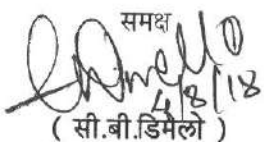 समक्ष
4/8/18
( सी.बी.डिमेलो )